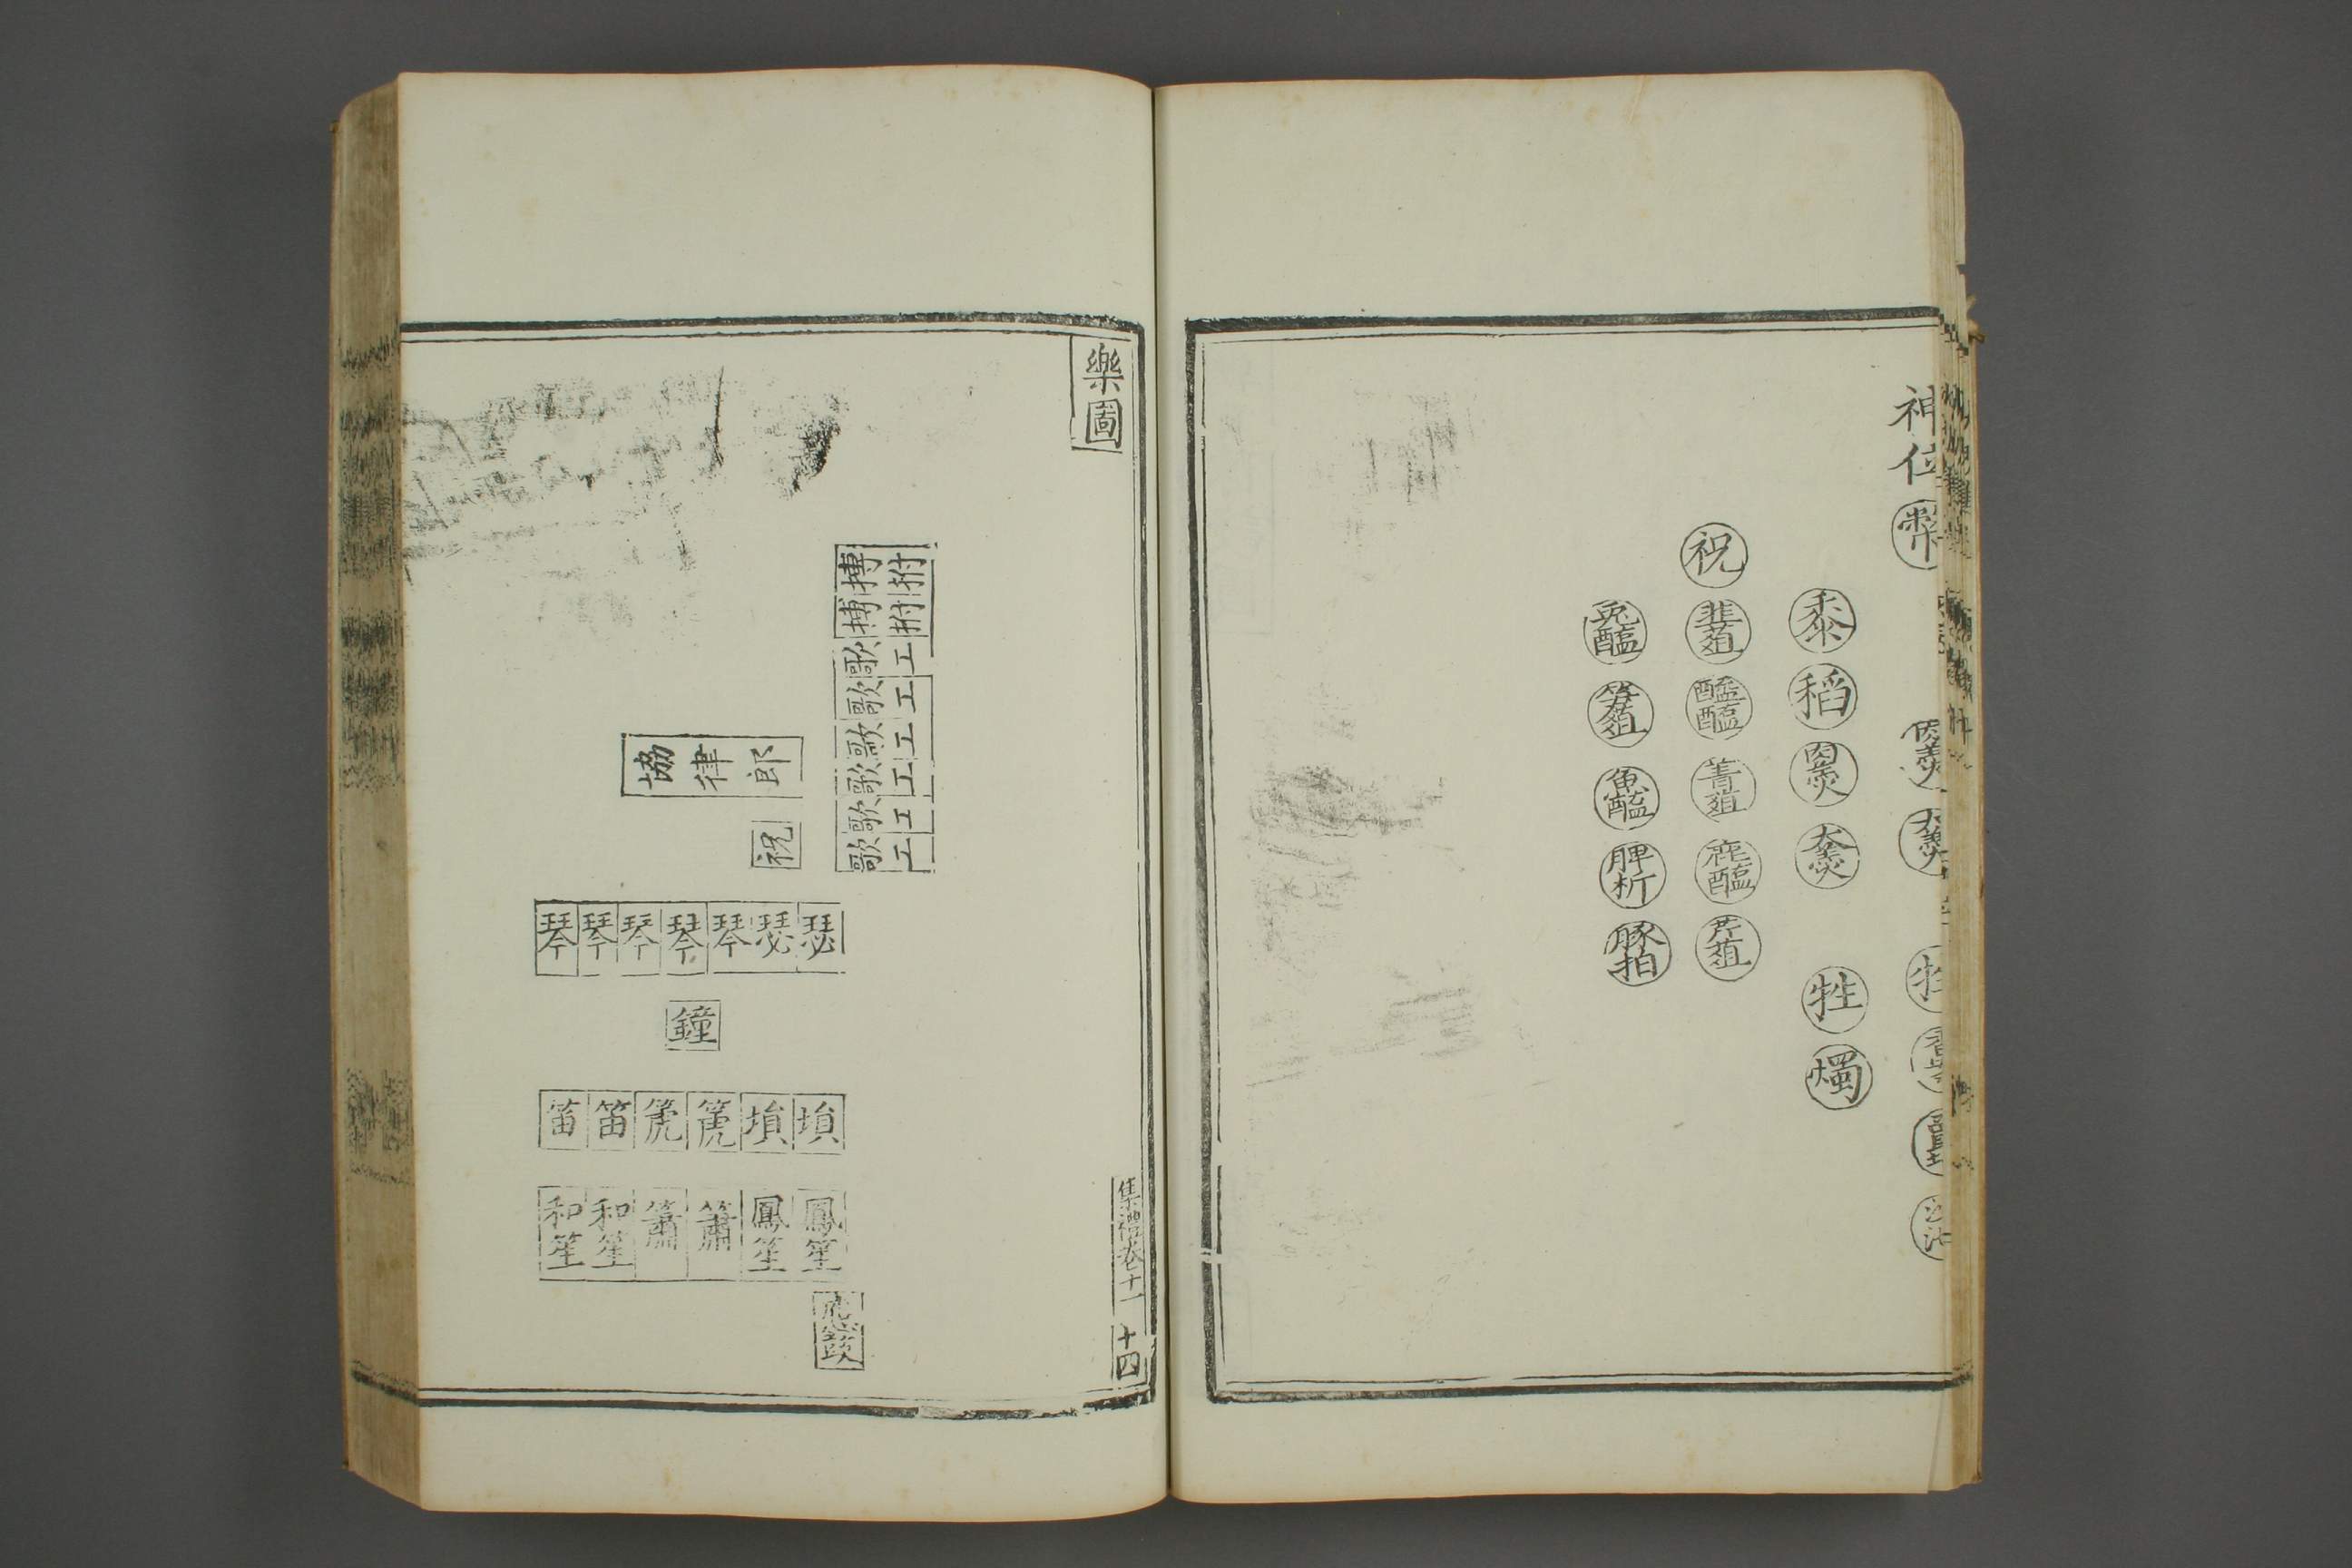 神位
黍
稻
牲
燭
祝
韭菹
醓醢
菁菹
鹿醢
芹菹
兎醢
筍菹
魚醢
脾析
豚拍
樂圖
搏拊
搏拊
歌工
歌工
歌工
歌工
歌工
歌工
協律郎
祝
琴琴琴琴琴瑟瑟
鐘
笛笛篪篪塤塤
和笙
和笙
簫
簫
鳳笙
鳳笙
應鼓
集禮卷十一
十四